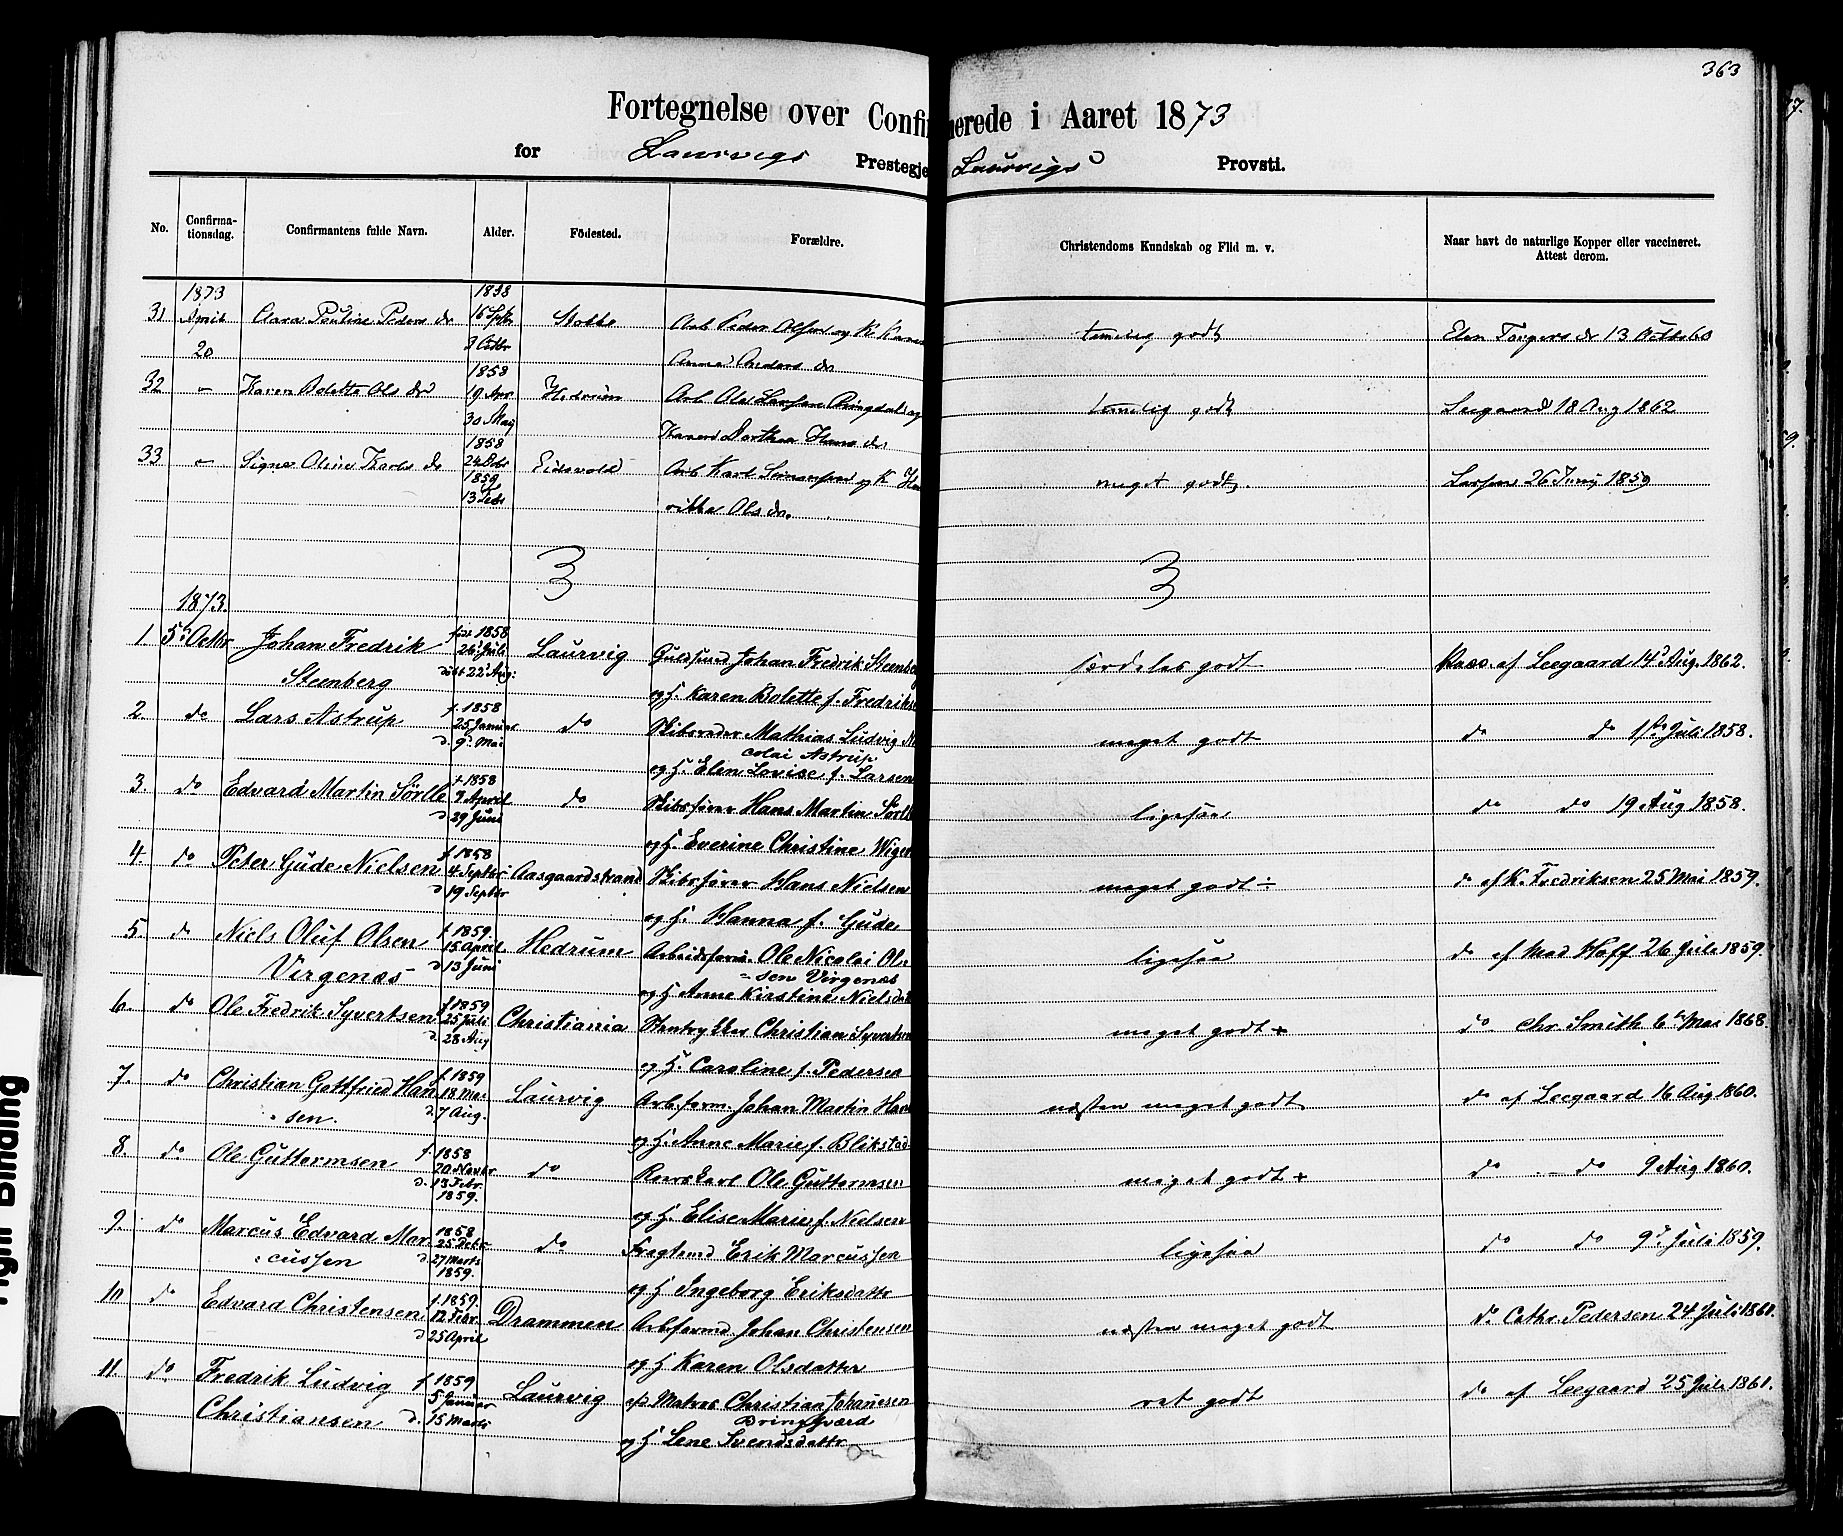 363
Fortegnelse over Confirmerede i Aaret 1873
for Laurvigs Prestegje Laurvigs Provsti.
No. Confirma-tionsdag. Confirmantens fulde Navn. Alder. Födested. Forældre. Christendoms Kundskab og Flid m. v. Naar havt de naturlige Kopper eller vaccineret. Attest derom.
1873 1858
31 April Clara Pauline Peders dr 16 Sptr Arb Peder Olsen og K Karen temelig godt Elen Torgers dr 13 Octb 60
20 3 Octbr Anna Anders dr
1858
32 " Karen Bolette Ols dr 19 Apr Hedrum Arb Ole Larsen Ringdal og temelig godt Leegaard 18 Aug 1862
30 Maj Karen Dorthea Hans dr
1858
33 " Signe Oline Karls dr 24 Eidsvold Arb Karl Simonsen og K meget godt. Larsen 26 Junij 1859
1859
13 Febr Ols dr.
3 3
1873.
1. 5 Octbr Johan Fredrik föd 1858 26 Juli Laurvig Guldsmed Johan Fredrik Steenberg særdeles godt Vacc. af Leegaard 14 Aug. 1862.
Steenberg döbt 22 Aug: og H. Karen Bolette f. Fredriks
2. do Lars Astrup f. 1858 25 Januar d. 9 Mai do Mathias Ludvig Ni meget godt do do 1ste Juli 1858.
colai Astrup
og H. Elin Lovise f. Larsen
3. do Edvard Martin Sörlle f. 1858 9 April d 29 Juni do Skibsförer Hans Martin Sörlle ligesaa do do 19 Aug 1858.
og H. Everine Christine Wiger
4. do Peter Gude Nielsen f. 1858 4 Septbr d 19 Septbr Aasgaardstrand Skibsförer Hans Nielsen meget godt ÷ do af K. Fredriksen 25 Mai 1859.
og H. Hanna f. Gude
5. do Niels Oluf Olsen f. 1859. 15 April d 13 Juni Hedrum Arbeidsform. Ole Nicolai Ol ligesaa do af Mad Hoff 26 Juli 1859.
Virgenæs sen Virgenæs
og H Anne Kirstine Nielsdat
6. do Ole Fredrik Syvertsen f 1859 25 Juli d. 28 Aug Christiania Stentrykker Christian Syvertsen meget godt + do Chr. Smith 6te Mai 1868.
og H. Caroline f. Pedersen
7. do Christian Gottfried Han f. 1859 18 Mai d. 7 Aug. Laurvig Arb.form. Johan Martin Han næsten meget godt do af Leegaard 16 Aug 1860.
sen. og H. Anne Marie f. Blikstad
8. do Ole Guttormsen f. 1858 20 Novbr d. 13 Febr. 1859. do Ole Guttormsen meget godt + do do 9 Aug 1860.
og H. Elise Marie f. Nielsen
9. do Marcus Edvard Mar 1858 25 Decbr d. 27 Marts 1859. do Fragtmd Erik Marcussen ligesaa do do 9 Juli 1859.
cussen og H Ingeborg Eriksdattr
10 do Edvard Christensen f. 1859. 12 Febr d 25 April Drammen Arbformd Johan Christensen næsten meget godt do Cathr. Pedersen 24 Juli 1861.
og H Karen Olsdatter
11. do Fredrik Ludvig f 1859 5 Januar Laurvig Matros Christian Johanesen ret godt do af Leegaard 25 Juli 1861.
Christiansen d. 15 Marts Bringsværd
og H Lene Svendsdattr